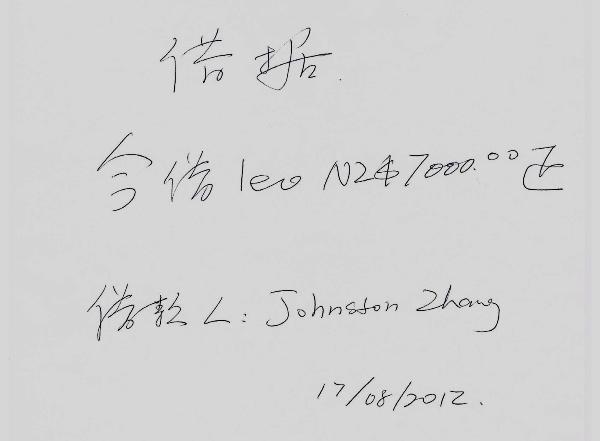 借据.
今借 leo NZ$7000.00正
借款人: Johnston Zhang
17/08/2012.